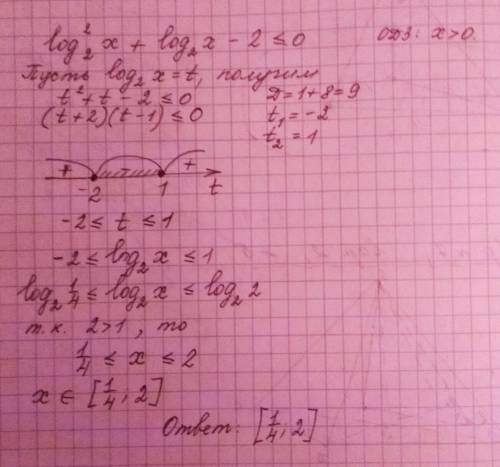 log₂² x + log₂ x - 2 ≤ 0
ОДЗ: x>0.
Пусть log₂ x = t, получим
t² + t - 2 ≤ 0
D = 1 + 8 = 9
(t+2)(t-1) ≤ 0
t₁ = -2
t₂ = 1
+ +
-2 1 t
-2 ≤ t ≤ 1
-2 ≤ log₂ x ≤ 1
log₂ 1/4 ≤ log₂ x ≤ log₂ 2
т.к. 2>1, то
1/4 ≤ x ≤ 2
x ∈ [1/4; 2]
Ответ: [1/4; 2]